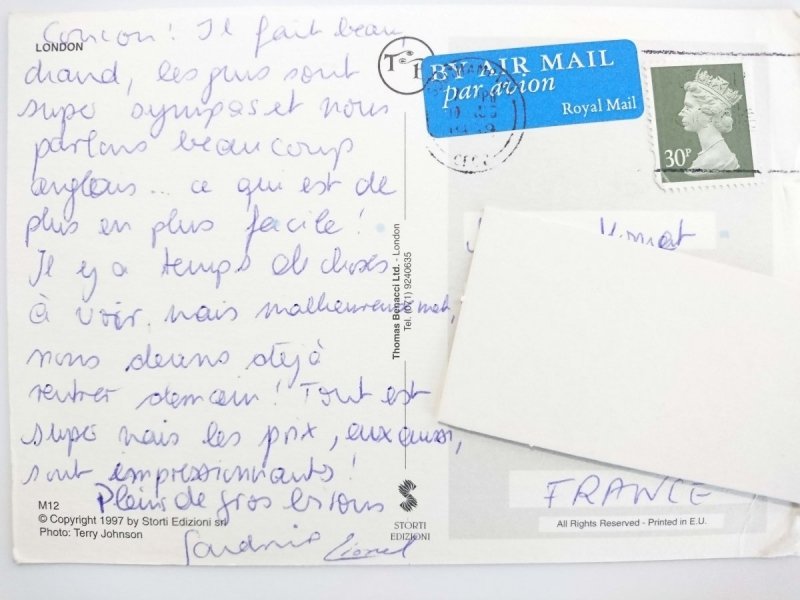 LONDON
Coucou! Il fait beau
chaud, les gens sont
super sympas et nous
parlons beaucoup
anglais... ce qui est de
plus en plus facile!
Il y a temps de choses
à voir, mais malheureusement,
nous devons déjà
rentrer demain! Tout est
super mais les prix, eux aussi,
sont impressionnants!
Plein de gros bisous
Lionel
M12
© Copyright 1997 by Storti Edizioni srl
Photo: Terry Johnson
Thomas Benacci Ltd. - London
Tel. (071) 9240635
STORTI
EDIZIONI
BY AIR MAIL
par avion
Royal Mail
30P
FRANCE
All Rights Reserved - Printed in E.U.